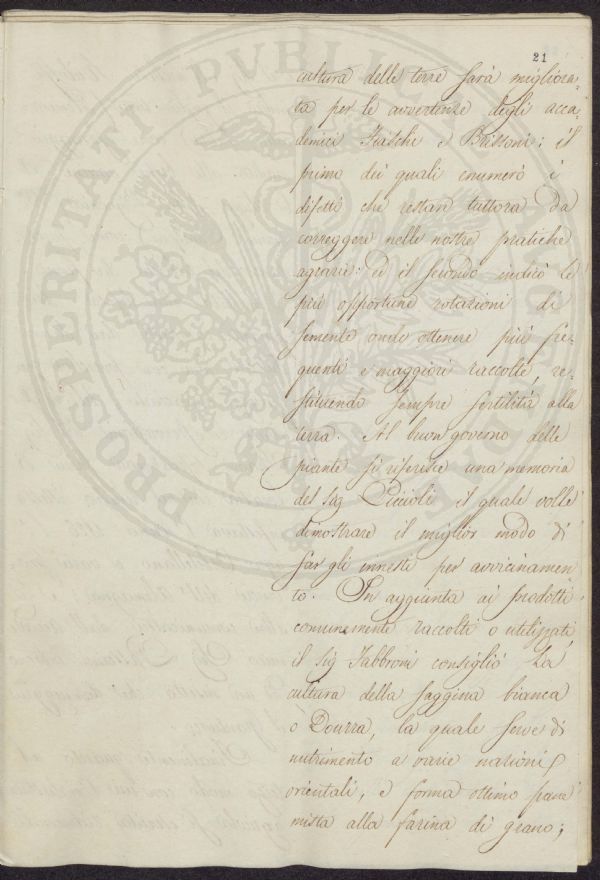 21
cultura delle terre sarà migliora-
ta per le avvertenze degli acca-
demici Fiaschi e Brissoni: il
primo dei quali enumerò i
difetti che restare tuttora da
correggere nelle nostre pratiche
agrarie: ed il secondo indicò le
più opportune rotazioni di
semente onde ottenere più fre-
quenti e maggiori raccolte, re-
stituendo sempre fertilità alla
terra. Al buon governo delle
piante si riferisce una memoria
del Sig Piccioli il quale volle
dimostrare il miglior modo di
far gli innesti per avvicinamen
to. In aggiunta ai prodotti
comunemente raccolti o utilizzati
il Sig Fabbroni consigliò la
cultura della saggina bianca
o Dourra, la quale serve di
nutrimento a varie nazioni
orientali, e forma ottimo pane
mista alla farina di grano;
PROSPERITATI PVBLICAE